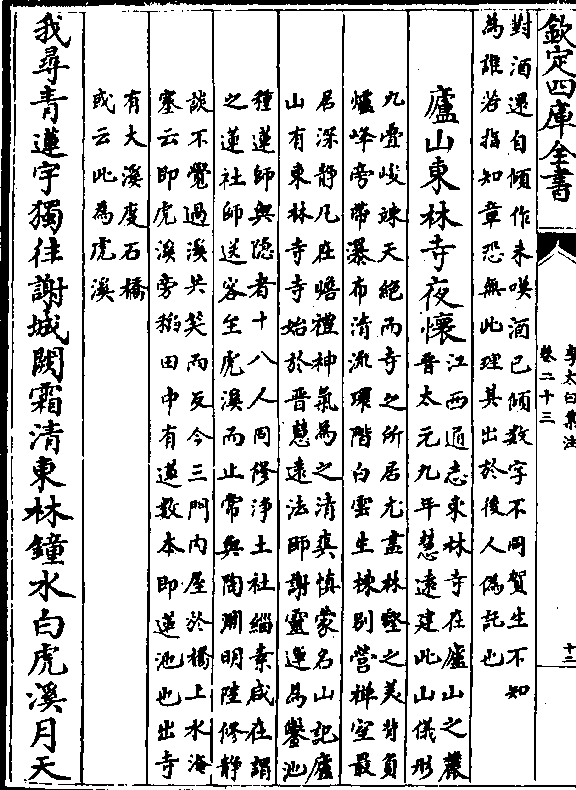 欽定四庫全書
李太白集注
卷二十三
對酒還自傾作未嘆酒已傾數字不同賀生不知
為誰若指知章恐無此理其出於後人偽託也
廬山東林寺夜懷
江西通志東林寺在廬山之麓
晉太元九年慧遠建此山儀形
九疊峻竦天絕而寺之所居尤盡林壑之美背負
爐峰旁帶瀑布清流環階白雲生棟別營禪室最
居深靜凡在瞻禮神氣為之清爽慎蒙名山記廬
山有東林寺寺始於晉慧遠法師謝靈運為鑿池
種蓮師與隱者十八人同修淨土社緇素咸在謂
之蓮社師送客至虎溪而止常與陶淵明陸修靜
談不覺過溪共笑而反今三門內屋於橋上水淹
塞云即虎溪旁稻田中有蓮數本即蓮池也出寺
有大溪度石橋
或云此為虎溪
我尋青蓮宇獨往謝城闕霜清東林鐘水白虎溪月天